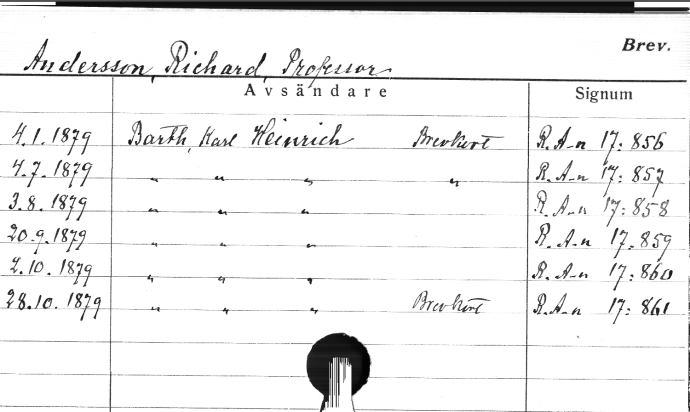 Brev.
Andersson, Richard, Professor
Avsändare Signum
4.1. 1879 Barth, Karl Heinrich Brevkort R. A-n 17: 856
4.7. 1879 " " " " R. A-n 17: 857
3.8. 1879 " " " R. A-n 17: 858
20.9. 1879 " " " R. A-n 17. 859
2.10. 1879 " " " R. A-n 17: 860
28.10. 1879 " " " Brevkort R. A-n 17: 861